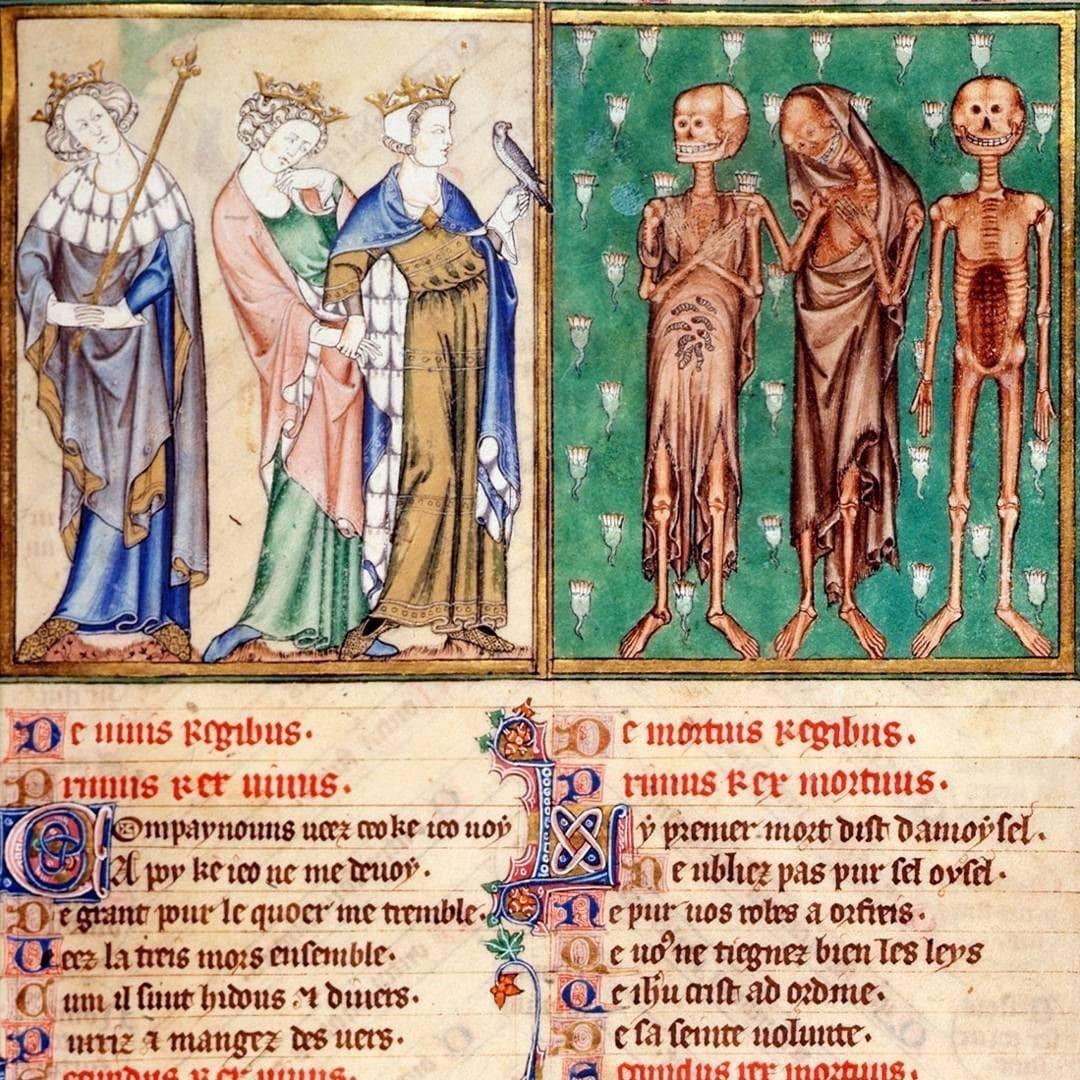 De uiuis Regibus.
Primus Rex uiuus.
Compaynouns ueez ceo ke ieo uoy
A poy ke ieo ne me deuoy.
De grant pour le quoer me tremble.
Veez la treis mors ensemble.
Cum il sunt hidous & diuers.
Purriz & mangez des uers.
Secundus Rex uiuus.
De mortuis Regibus.
Primus Rex mortuus.
Ly premier mort dist damoysel.
Ne ubliez pas pur sel oysel.
Ne pur uos robes a orfreis.
Qe uo9 ne tiegnez bien les leys
Qe ihu crist ad ordine.
De sa seinte uolunte.
Secundus rex mortuus.